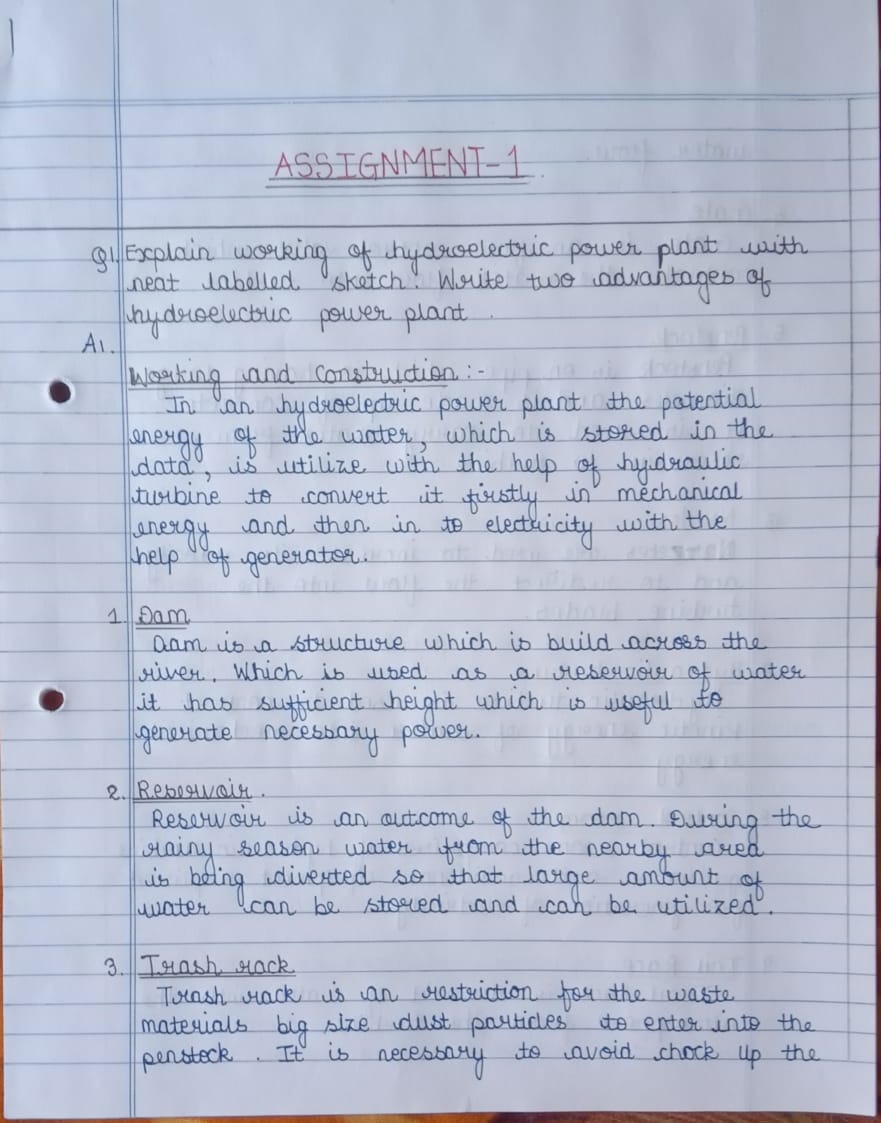 ASSIGNMENT-1
Q1. Explain working of hydroelectric power plant with
neat labelled sketch. Write two advantages of
hydroelectric power plant.
A1.
Working and Construction :-
In an hydroelectric power plant the patential
energy of the water, which is stored in the
data, is utilize with the help of hydraulic
turbine to convert it firstly in mechanical
energy and then in to electricity with the
help of generator.
1. Dam
Dam is a structure which is build across the
river. Which is used as a reservoir of water
it has sufficient height which is useful to
generate necessary power.
2. Reservoir.
Reservoir is an outcome of the dam. During the
rainy season water from the nearby area
is being diverted so that large amount of
water can be stored and can be utilized.
3. Trash rack
Trash rack is an restriction for the waste
materials big size dust particles to enter into the
penstock. It is necessary to avoid chock up the